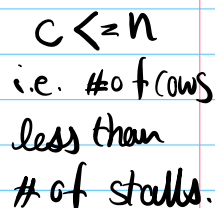 c <= n
i.e. # of cows
less than
# of stalls.